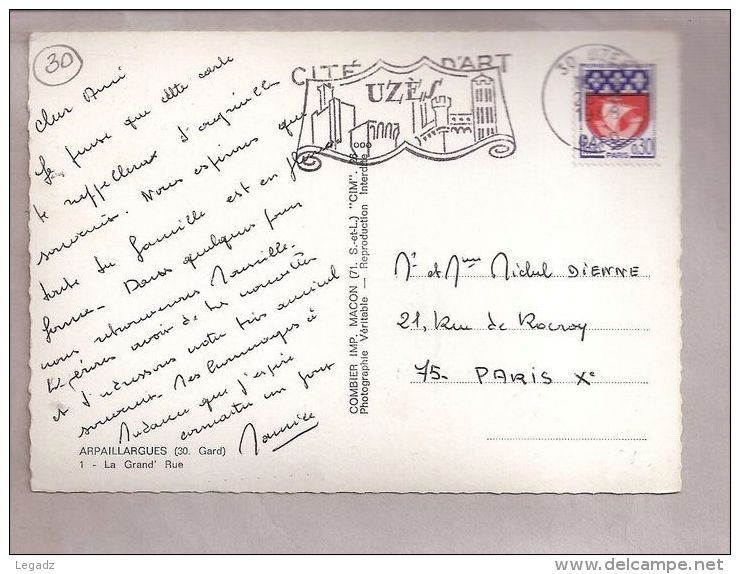 30
CITÉ D'ART
UZÈS
30 UZÈS
PARIS
0,30
Cher Ami
Je pense que cette carte
te rappellera d'agréables
souvenirs. Nous espérons que
toute ta famille est en pleine
forme. Dans quelques jours
nous retrouverons Marseille.
espérons avoir de tes nouvelles
et t'adressons notre très amical
souvenir. Mes hommages à
Madame que j'espère
connaître un jour
Maurice
ARPAILLARGUES (30. Gard)
1 - La Grand' Rue
COMBIER IMP. MACON (71. S.-et-L.) "CIM".
Photographie Véritable — Reproduction Interdite
Mr et Mme Michel DIENNE
21, Rue de Rocroy
75- PARIS Xe
Legadz
www.delcampe.net